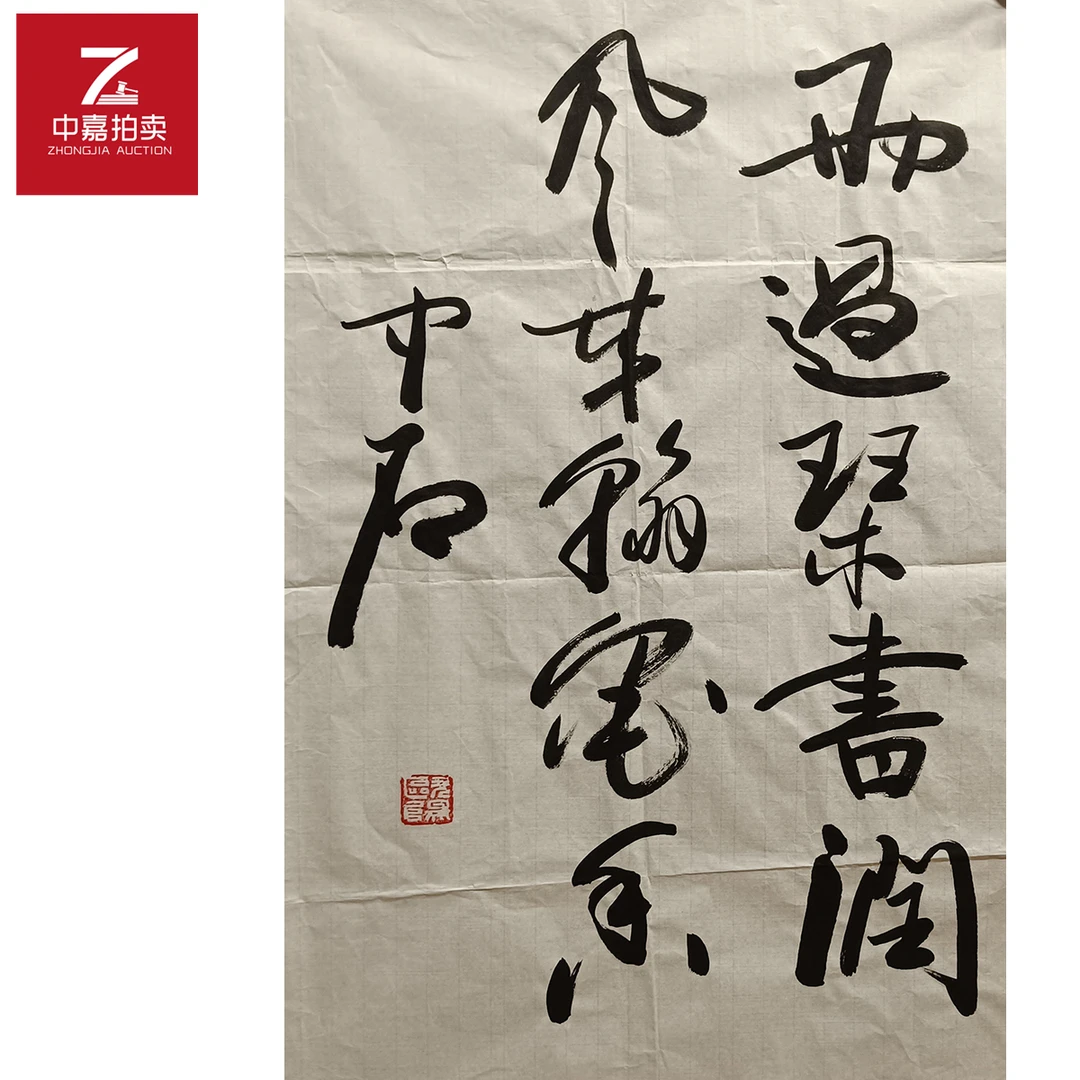 中嘉拍卖
ZHONGJIA AUCTION
雨過琴書潤
風來翰墨香
中石